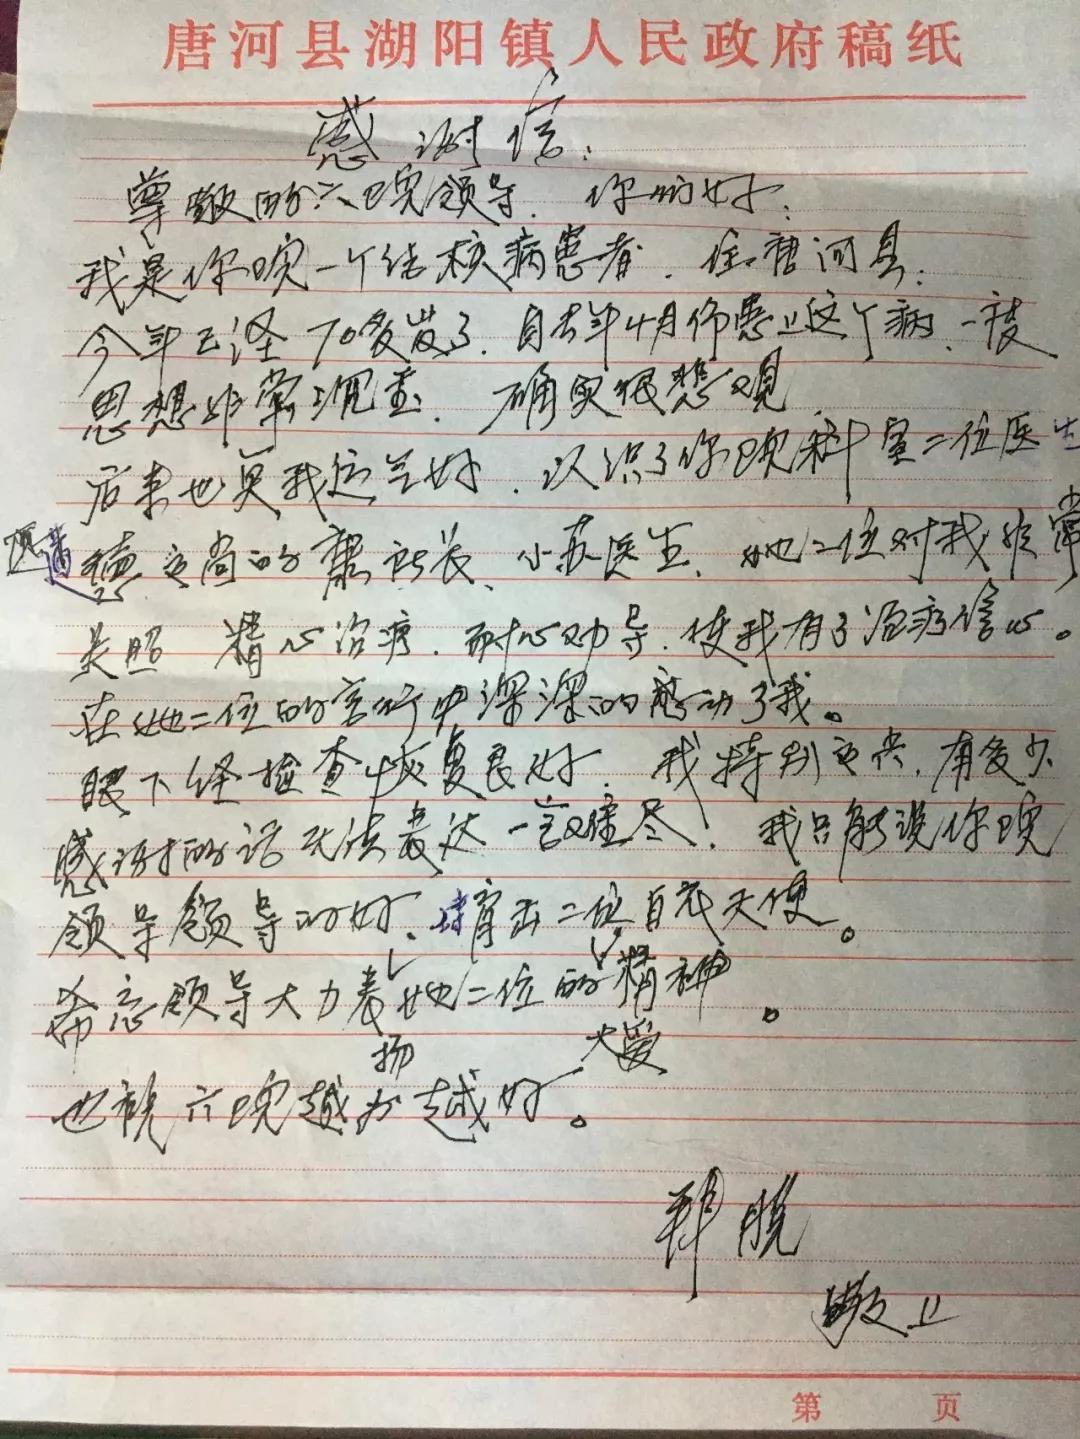 唐河县湖阳镇人民政府稿纸
感谢信:
尊敬的六院领导.你们好:
我是你院一个结核病患者.住唐河县.
今年已经70多岁了.自去年4月份患上这个病.一度
思想非常沉重.确实很悲观
后来也算我运气好.认识了你院科室二位医生
医道德高尚的 所长、小苏医生.她二位对我非常
关照 精心治疗.耐心劝导.使我有了治疗信心。
在她二位的言行中深深的感动了我。
眼下经检查恢复良好.我特别高兴.有多少
感谢的话无法表达一言难尽!我只能说你院
领导领导的好.培育出二位白衣天使。
希望领导大力表扬她二位的大爱精神。
也祝六院越办越好。
敬上
第 页